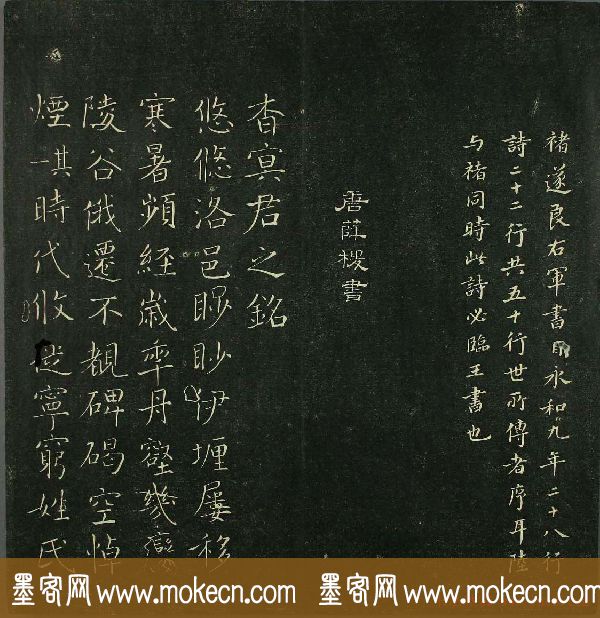 褚遂良右軍書目永和九年二十八行
詩二十二行共五十行世所傳者序耳陸
与褚同時此詩必臨王書也
唐薛稷書
杳冥君之銘
悠悠洛邑眇眇伊瀍屢移
寒暑頻經歲年丹壑幾變
陵谷俄遷不覩碑碣空悼
煙 時代攸徙寧窮姓氏
墨客网 www.mokecn.com 墨客网 www.mokecn.com